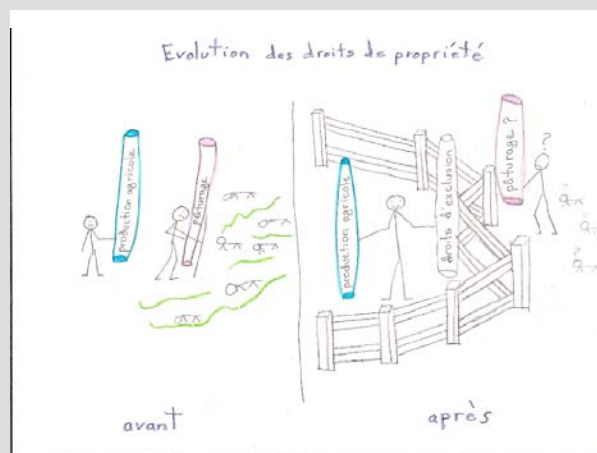 Evolution des droits de propriété
production agricole
pâturage
production agricole
droits d'exclusion
pâturage ?
?
?
?
?
avant
après